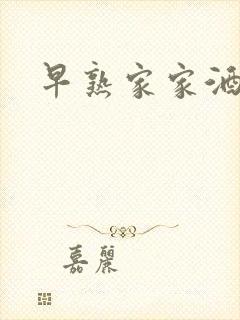 早熟家家酒
嘉丽